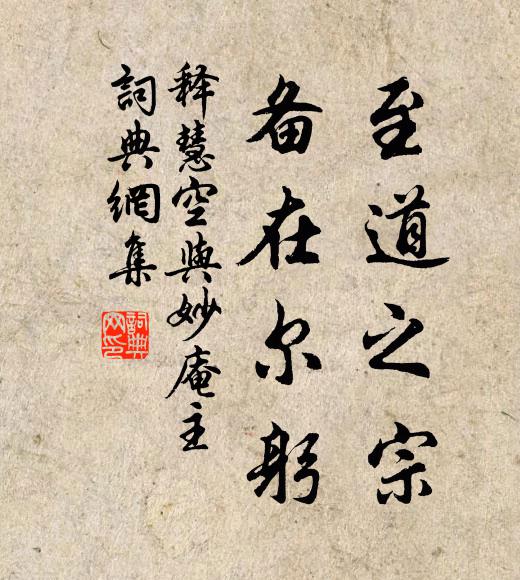 至道之宗
备在尔躬
释慧空與妙庵主
詞典網集
詞典網印